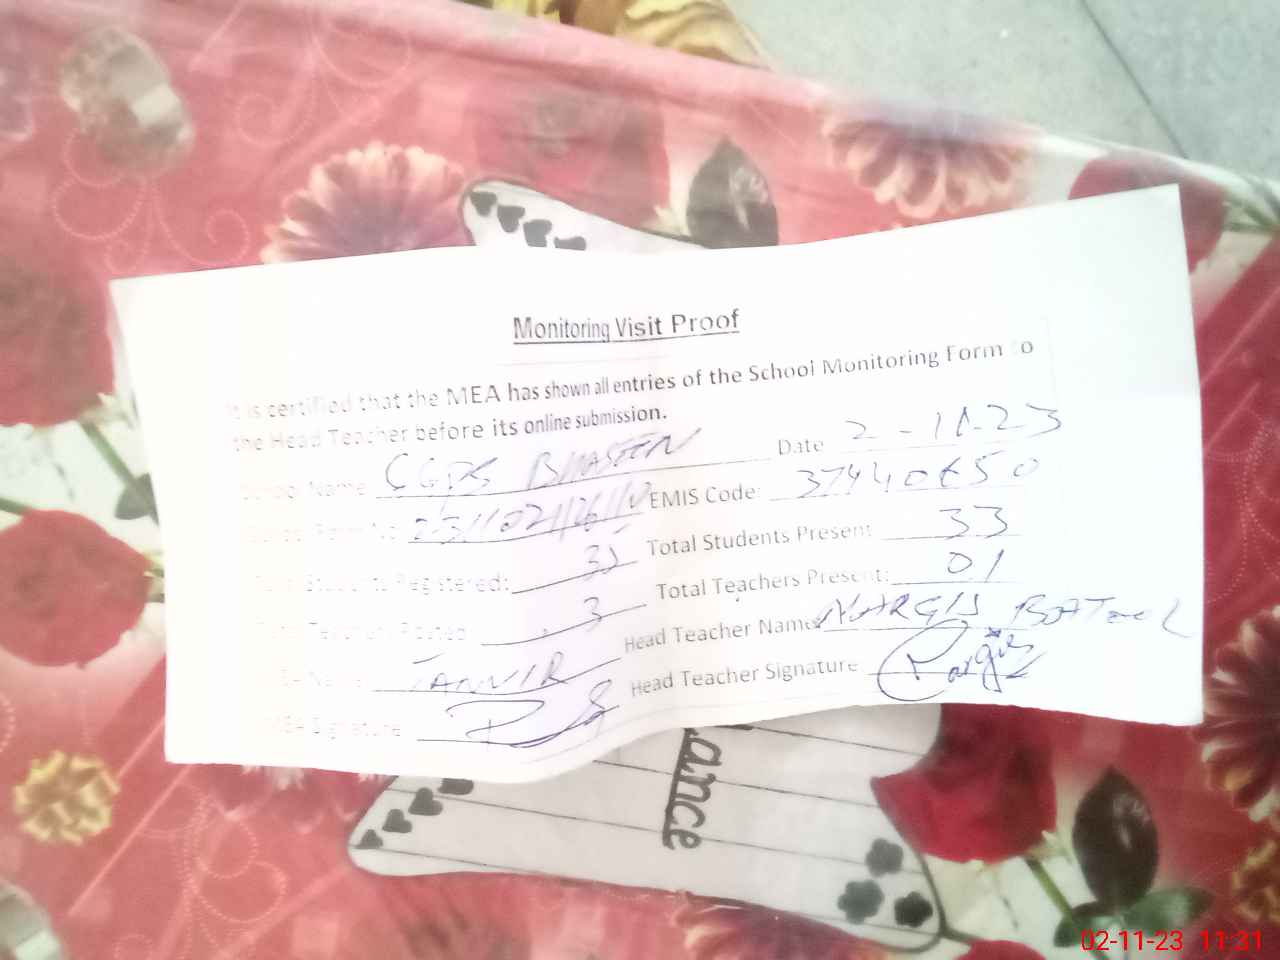 Monitoring Visit Proof
It is certified that the MEA has shown all entries of the School Monitoring Form to
the Head Teacher before its online submission.
School Name Date 2-11-23
School Form No EMIS Code: 37440650
Registered: Total Students Present 33
Teachers Posted 3 Total Teachers Present: 01
Name TANVIR Head Teacher Name NARGIS BATOOL
MEA Signature Head Teacher Signature Nargis
ance
02-11-23 11:31